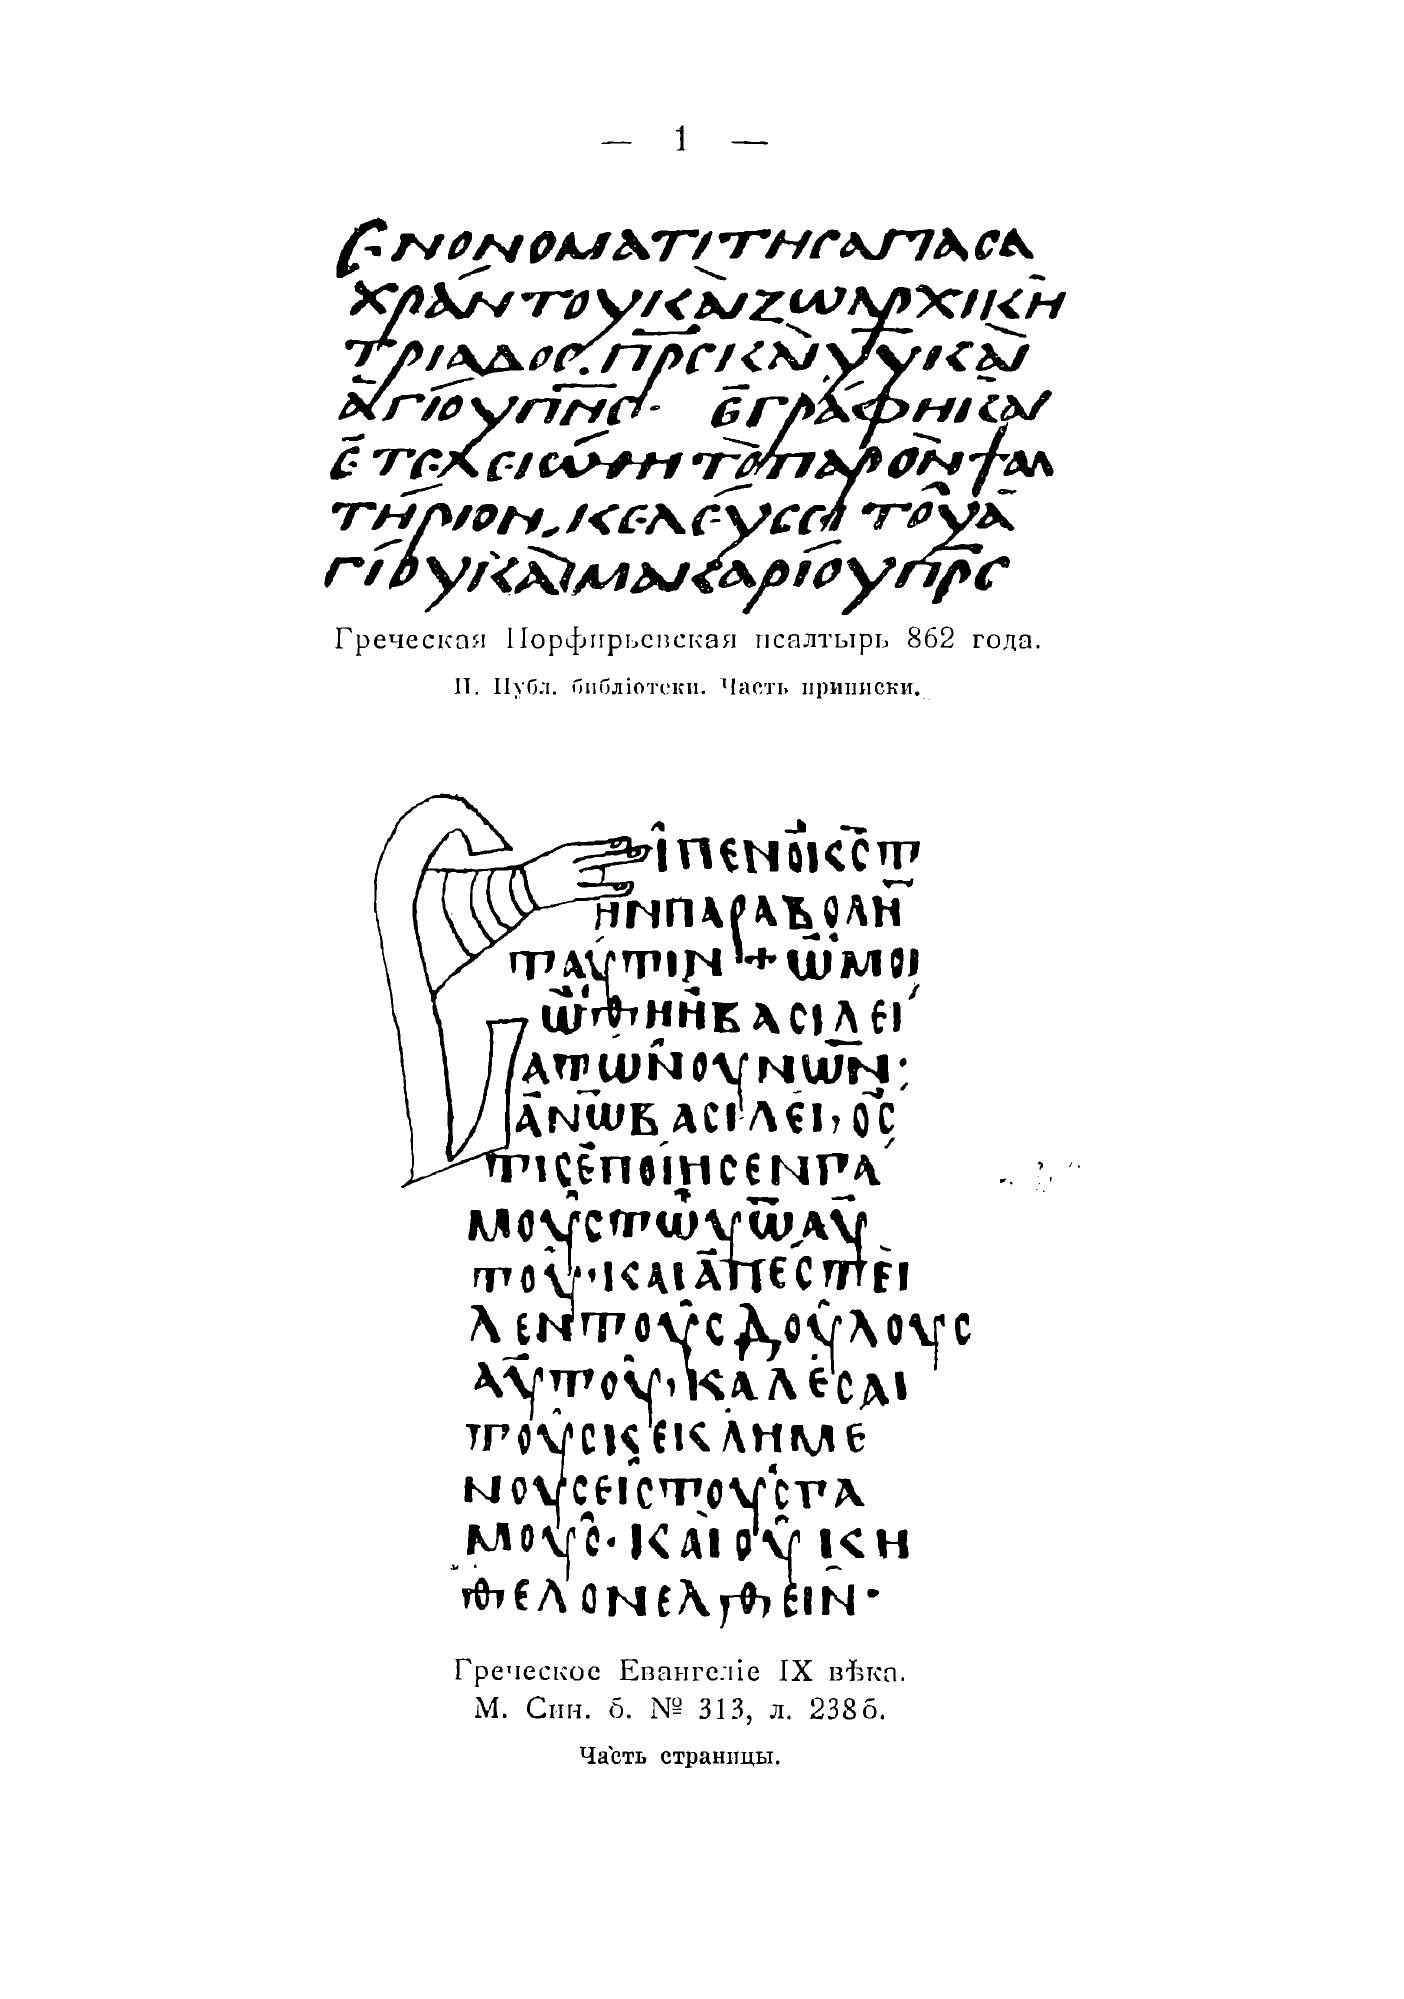 — 1 —
ЄΝΟΝΟΜΑΤΙΤΗϹΑΓΙΑϹΑ
ΧΡΆΝΤΟΥΚΑῚΖΩΑΡΧΙΚῊ
ΤΡΙΑΔΟϹ. Π̅Ρ̅ϹΙΚΑῚΥ̅Υ̅ΙΚΑῚ
ἈΓΊΟΥΠ̅Ν̅Ϲ· ЄΓΡΆΦΗΚΑΙ
ЄΤЄΧЄΙΏΘΗΤῸΠΑΡῸΝΨΑΛ
ΤΉΡΙΟΝ, ΚЄΛЄΎϹЄΙΤΟΥ͂Ἀ
ΓΊΟΥΚΑῚΜΑΚΑΡΊΟΥΠ̅Ρ̅Ϲ
Греческая Порфирьевская псалтырь 862 года.
П. Публ. библіотеки. Часть приписки.
ЄΙ͂ΠЄΝὉΚ̅Ϲ̅Τ
ΗΝΠΑΡΑΒΟΛῊ
ΤΑΎΤΙΝ + ὩΜΟΙ
ΏΘΗἩΒΑϹΙΛЄΊ
ΑΤΩ͂ΝΟΥΝΩ̅Ν̅:
Α̅ΝΩ̅ΒΑϹΙΛЄΙ͂, ὉϹ
ΤΙϹЄ̓ΠΟΊΗϹЄΝΓΆ
ΜΟΥϹΤΩ͂ΥΩ̅ΑΥ̓
ΤΟΥ͂· ΚΑΙἈΠΈϹΤЄΙ
ΛЄΝΤΟῪϹΔΟΎΛΟΥϹ
ΑΥ̓ΤΟΥ͂, ΚΑΛΈϹΑΙ
ΤΟῪϹΚЄΚΛΗΜЄ
ΝΟΥϹЄΙϹΤΟΥϹΓΑ
ΜΟΥϹ· ΚΑῚΟΥ̓ΚΗ
ΘЄΛΟΝЄΛΘЄΙ͂Ν·
Греческое Евангеліе IX вѣка.
М. Син. б. № 313, л. 238б.
Часть страницы.